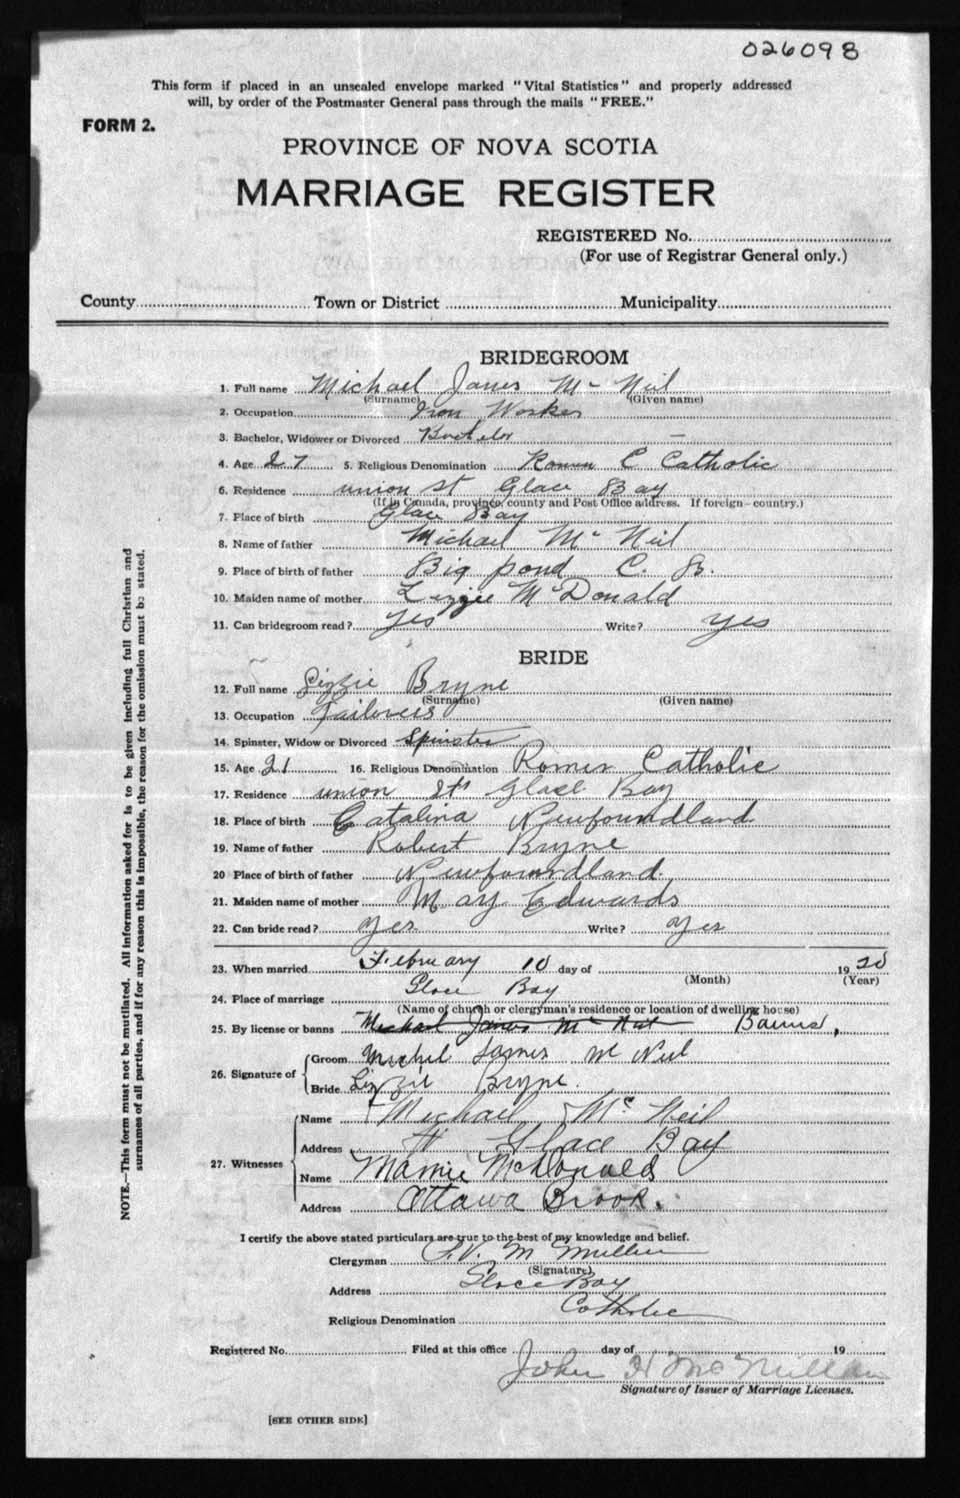 026098
This form if placed in an unsealed envelope marked "Vital Statistics" and properly addressed
will, by order of the Postmaster General pass through the mails "FREE."
FORM 2.
PROVINCE OF NOVA SCOTIA
MARRIAGE REGISTER
REGISTERED No.
(For use of Registrar General only.)
County Town or District Municipality
BRIDEGROOM
1. Full name Michael James Mc Neil
(Surname) (Given name)
2. Occupation Iron Worker
3. Bachelor, Widower or Divorced Bachelor
4. Age 27 5. Religious Denomination Roman C Catholic
6. Residence union St Glace Bay
(If in Canada, province, county and Post Office address. If foreign—country.)
7. Place of birth Glace Bay
8. Name of father Michael Mc Neil
9. Place of birth of father Big pond C. B.
10. Maiden name of mother Lizzie McDonald
11. Can bridegroom read? Yes Write? yes
BRIDE
12. Full name Lizzie Bryne
(Surname) (Given name)
13. Occupation Tailoress
14. Spinster, Widow or Divorced Spinster
15. Age 21 16. Religious Denomination Romen Catholic
17. Residence union St Glace Bay
18. Place of birth Catalina Newfoundland
19. Name of father Robert Bryne
20 Place of birth of father Newfoundland.
21. Maiden name of mother Mary Edwards
22. Can bride read? yes Write? yes
23. When married February 10 day of 1920
(Month) (Year)
24. Place of marriage Glace Bay
(Name of church or clergyman's residence or location of dwelling house)
25. By license or banns Michael James Mc Neil Banns,
26. Signature of Groom Michel James Mc Neil
Bride Lizzie Bryne.
27. Witnesses Name Michael Mc Neil
Address Glace Bay
Name Mamie McDonald
Address Ottawa Brook.
I certify the above stated particulars are true to the best of my knowledge and belief.
Clergyman
(Signature)
Address Glace Bay
Religious Denomination Catholic
Registered No. Filed at this office day of 19
John H McMillan
Signature of Issuer of Marriage Licenses.
[SEE OTHER SIDE]
NOTE.—This form must not be mutilated. All information asked for is to be given including full Christian and
surnames of all parties, and if for any reason this is impossible, the reason for the omission must be stated.